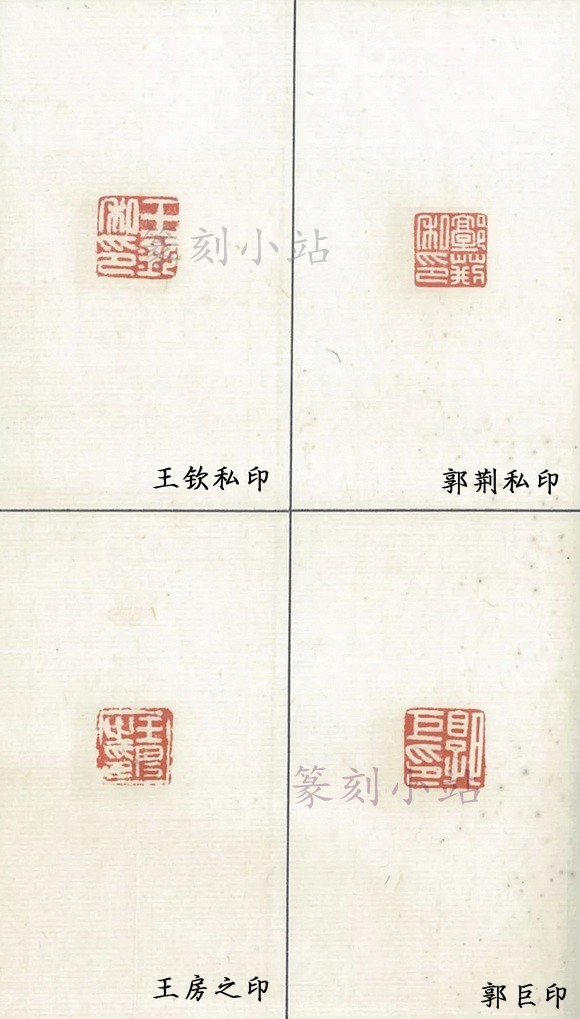 王钦私印
篆刻小站
郭荆私印
王房之印
篆刻小站
郭巨印